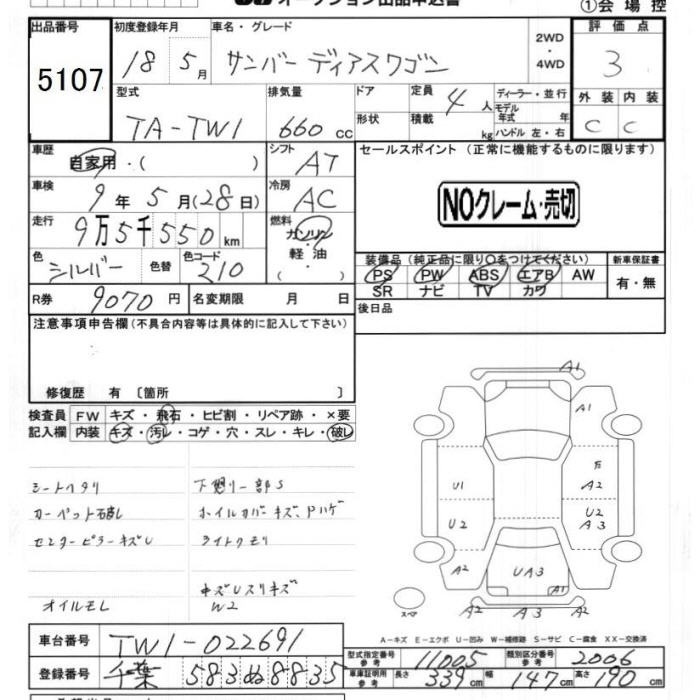 オークション出品申込書
①会場控
出品番号 5107
初度登録年月 18 5月
車名・グレード サンバー ディアスワゴン
2WD
・
4WD
評価点 3
型式 TA-TW1
排気量 660 cc
ドア
形状
定員 4人
積載 kg
ディーラー・並行
モデル年式 年
ハンドル 左・右
外装 内装
C C
車歴 自家用・( )
シフト AT
セールスポイント (正常に機能するものに限ります)
車検 9年 5月(28日)
冷房 AC
NOクレーム・売切
走行 9万5千550km
燃料 ガソリン
軽・油
( )
色 シルバー 色替 色コード 210
装備品 (純正品に限り○をつけてください)
新車保証書
PS PW ABS エアB AW
有・無
SR ナビ TV カワ
R券 9070円 名変期限 月 日
後日品
注意事項申告欄(不具合内容等は具体的に記入して下さい)
修復歴 有 〔箇所 〕
検査員 FW キズ・飛石・ヒビ割・リペア跡・×要
記入欄 内装 キズ・汚レ・コゲ・穴・スレ・キレ・破レ
シートヘタリ 下廻リ一部S
カーペット破レ ホイルカバーキズ、Pハゲ
センターピラーキズU ライトクモリ
オイルモレ
W2
A1
A1
U1
A2
U2
U2
A3
A2
UA3
A2
A2 A3 A2
スペア
A-キズ E-エクボ U-凹み W-補修跡 S-サビ C-腐食 XX-交換済
車台番号 TW1-022691
型式指定番号 参考 11005 類別区分番号 参考 2006
登録番号 千葉 583 ぬ 8835
車庫証明用 参考 長さ 339cm 幅 147cm 高さ 190cm